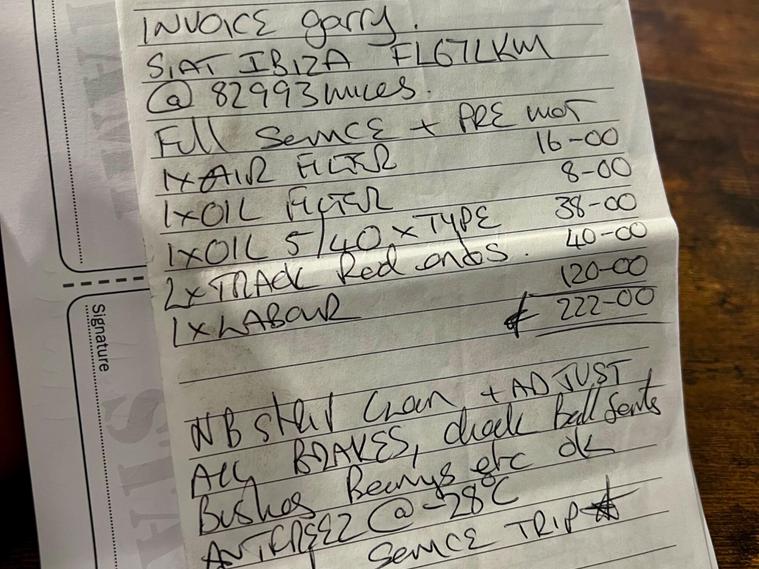 INVOICE garry.
SIAT IBIZA FL67LKM
@ 82993 miles.
Full Service + PRE MOT
1x AIR FILTER 16-00
1x OIL FILTER 8-00
1x OIL 5/40 x TYPE 38-00
2x TRACK Rod ends. 40-00
1x LABOUR 120-00
£ 222-00
NB strip Clean + ADJUST
All BRAKES, check ball Joints
Bushes Bearings etc ok
ANTIFREEZ @ -28°C
SERVICE TRIP
Signature
STA